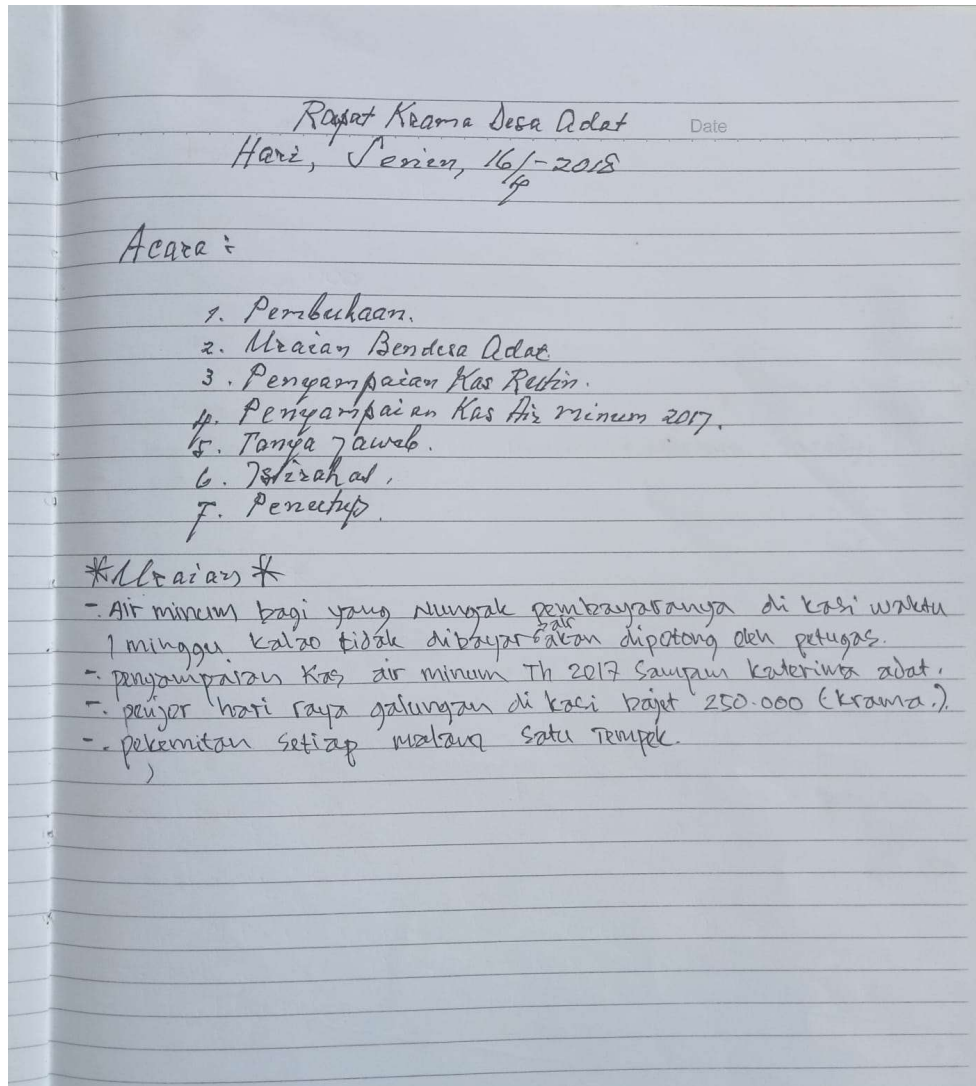 Rapat Krama Desa Adat
Date
Hari, Senien, 16/4-2018
Acara :
1. Pembukaan.
2. Uraian Bendesa Adat
3. Penyampaian Kas Rutin.
4. Penyampaian Kas Air minum 2017.
5. Tanya Jawab.
6. Istirahat,
7. Penutup.
*Uraian*
-. Air minum bagi yang Nungak pembayaranya di kasi waktu
1 minggu kalao tidak dibayar air akan dipotong oleh petugas.
-. penyampaian Kas air minum Th 2017 Sampun katerima adat.
-. penjor hari raya galungan di kasi bajet 250.000 (krama.)
-. pekemitan setiap malam satu Tempek.